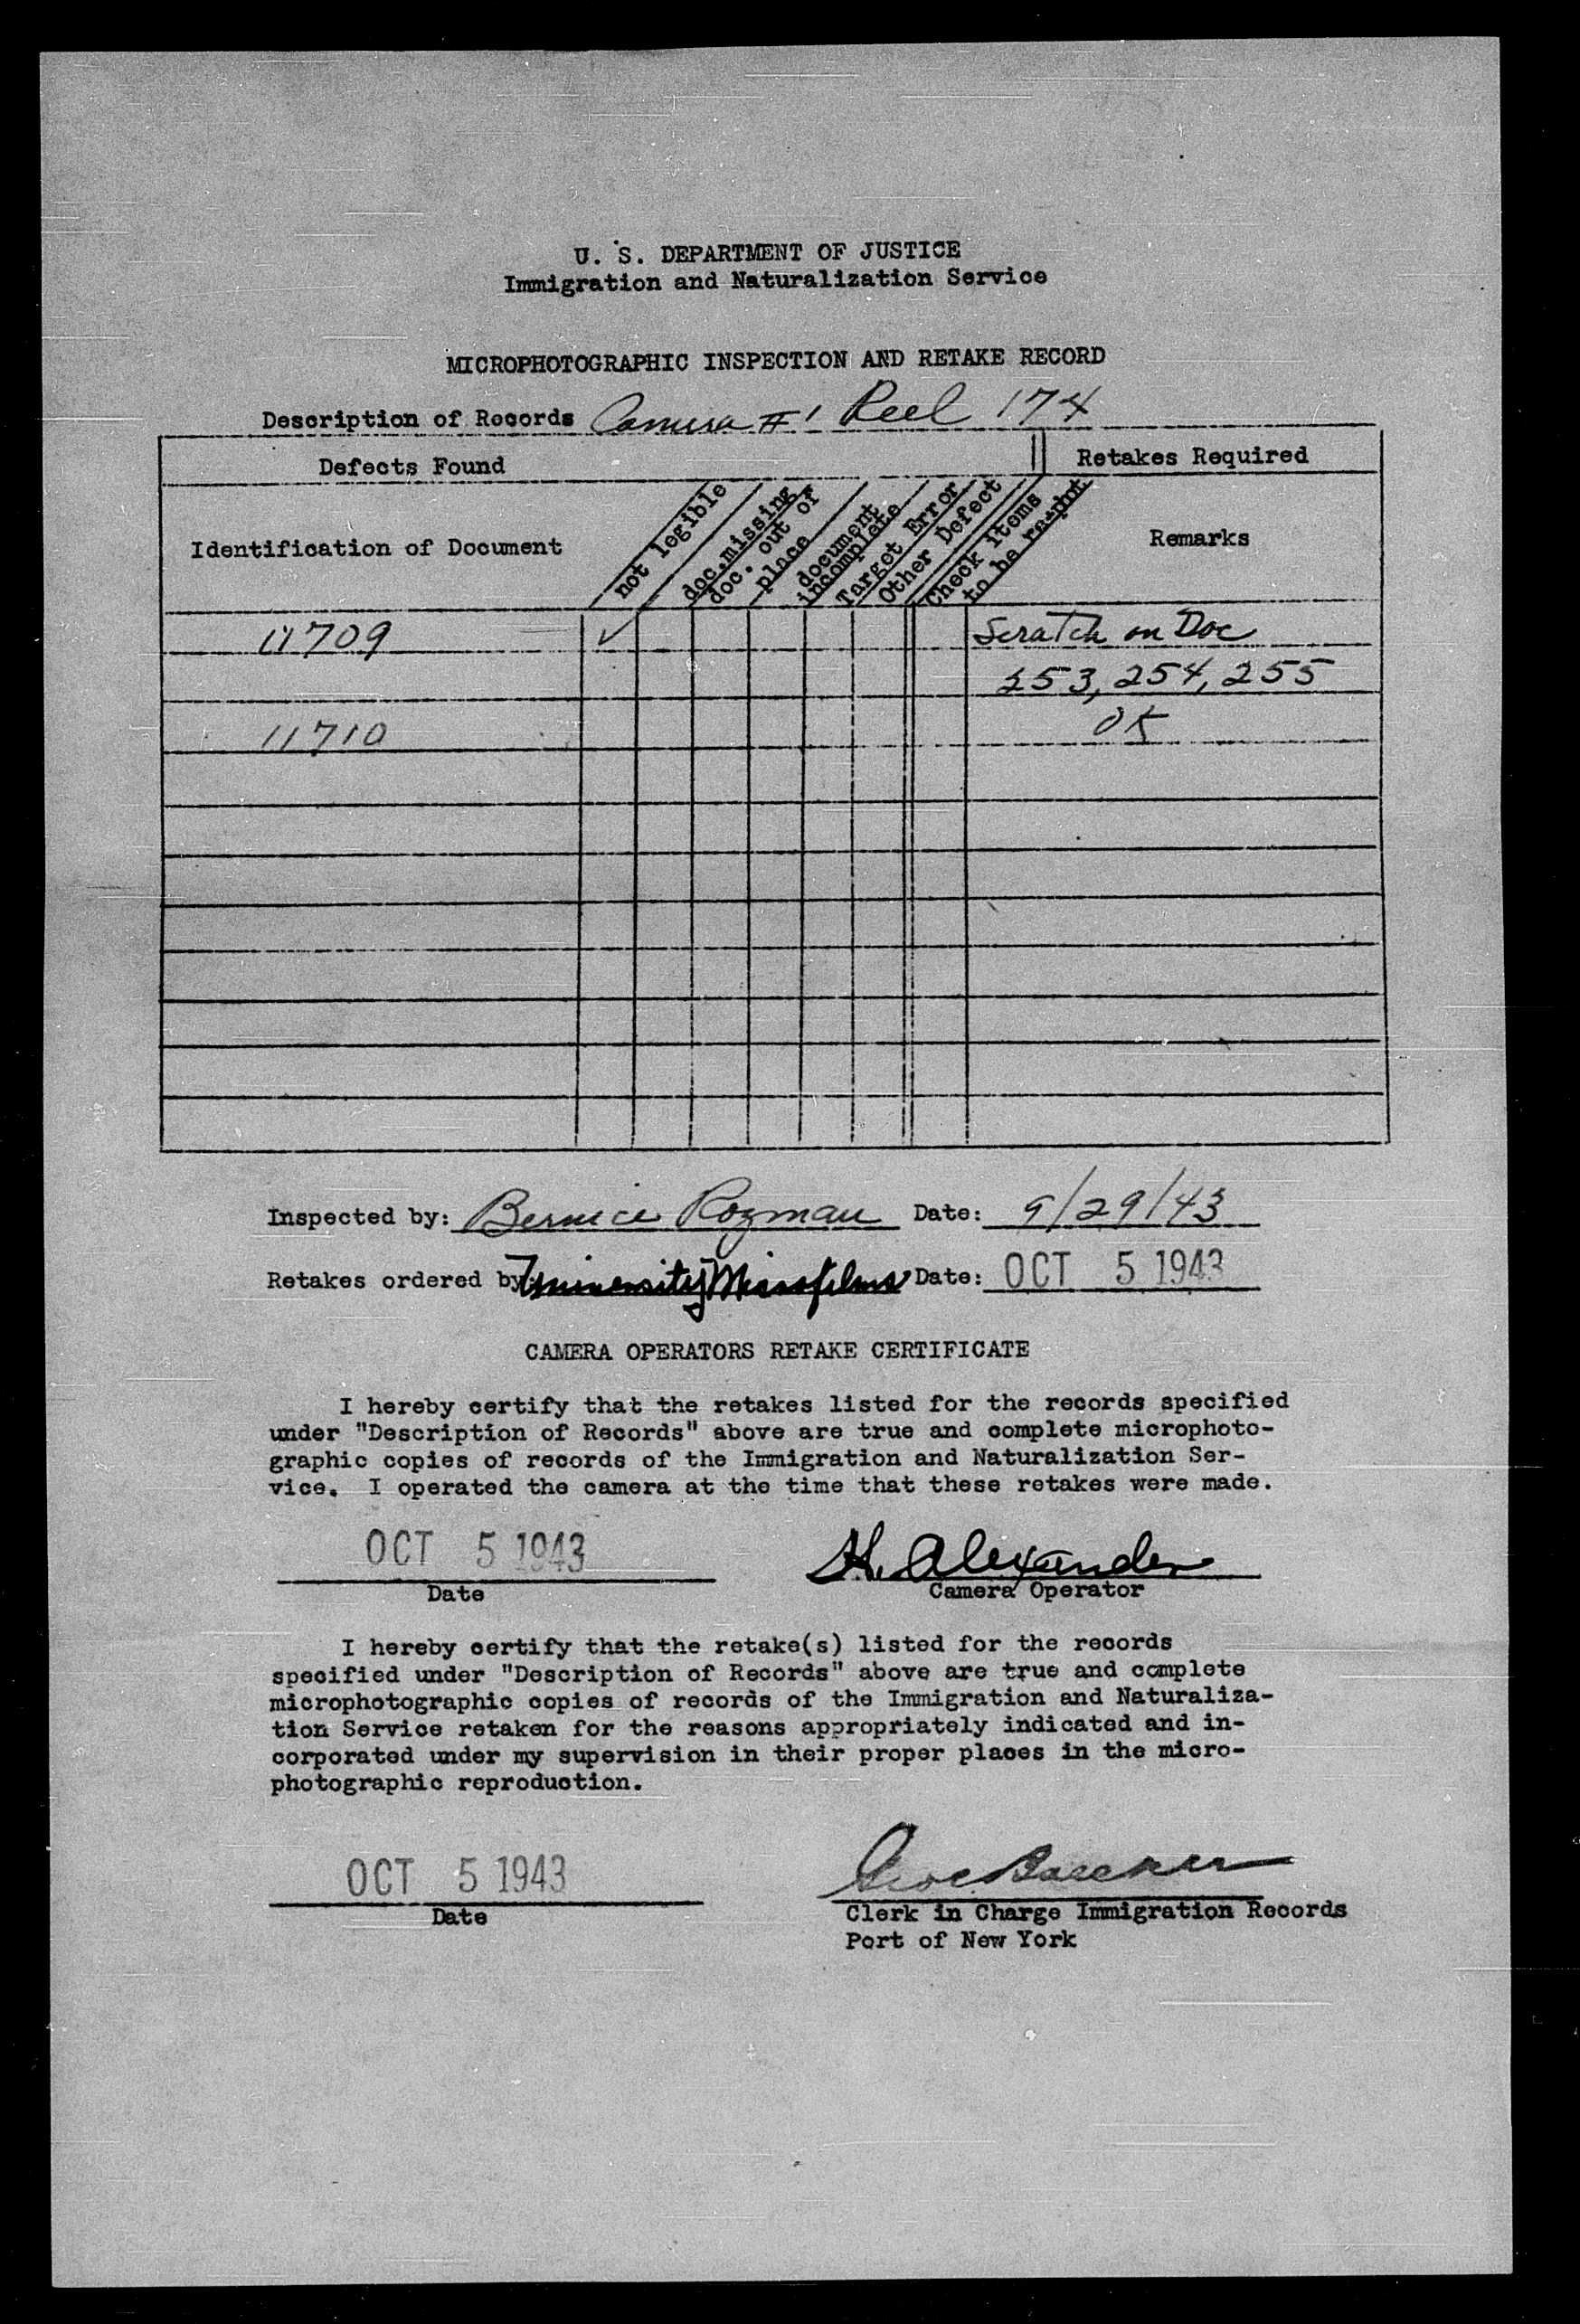 U. S. DEPARTMENT OF JUSTICE
Immigration and Naturalization Service
MICROPHOTOGRAPHIC INSPECTION AND RETAKE RECORD
Description of Records Camera #1 Reel 174
Defects Found
Retakes Required
Identification of Document
not legible
doc. missing
doc. out of
place
document
incomplete
Target Error
Other Defect
Check items
to be re-phot
Remarks
11709 ✓ Scratch on Doc
253, 254, 255
11710 OK
Inspected by: Bernice Rozman Date: 9/29/43
Retakes ordered by: University Microfilms Date: OCT 5 1943
CAMERA OPERATORS RETAKE CERTIFICATE
I hereby certify that the retakes listed for the records specified
under "Description of Records" above are true and complete microphoto-
graphic copies of records of the Immigration and Naturalization Ser-
vice. I operated the camera at the time that these retakes were made.
OCT 5 1943 H. Alexander
Date Camera Operator
I hereby certify that the retake(s) listed for the records
specified under "Description of Records" above are true and complete
microphotographic copies of records of the Immigration and Naturaliza-
tion Service retaken for the reasons appropriately indicated and in-
corporated under my supervision in their proper places in the micro-
photographic reproduction.
OCT 5 1943
Date Clerk in Charge Immigration Records
Port of New York